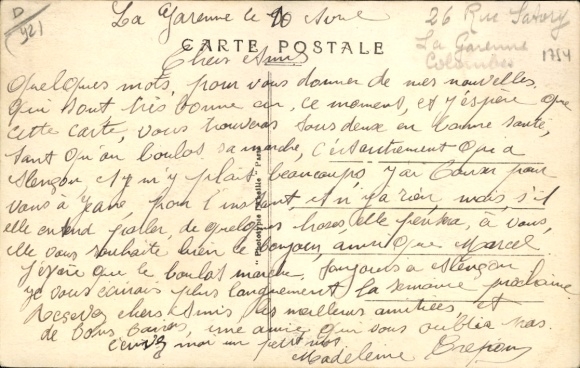 D
(92)
La Garenne le 20 Avril
26 Rue Sartory
La Garenne
Colombes
1754
CARTE POSTALE
Chers Amis
Quelques mots, pour vous donner de mes nouvelles.
qui sont très bonne au, ce moment, et j'éspère que
cette carte, vous trouveras tous deux en bonne santé,
tant qu'au boulot sa marche, c'est autrement que a
Alençon, et y m'y plait beaucoups, j'ai
vous à pour l'instant, il n'y a rien, mais, s'il
elle entend parler, de quelques choses, elle pensera, à vous,
elle vous souhaite bien le bonjour, ainsi que Marcel
J'éspère que le boulot marche, toujours à Alençon
je vous plus longuement la semaine prochaine
Recever chers Amis les meilleurs amitiées, et
de bons baisers, une amie, qui vous oublie pas.
écrivez moi un petit mot.
Madeleine
"Phototypie "Abeille" Paris